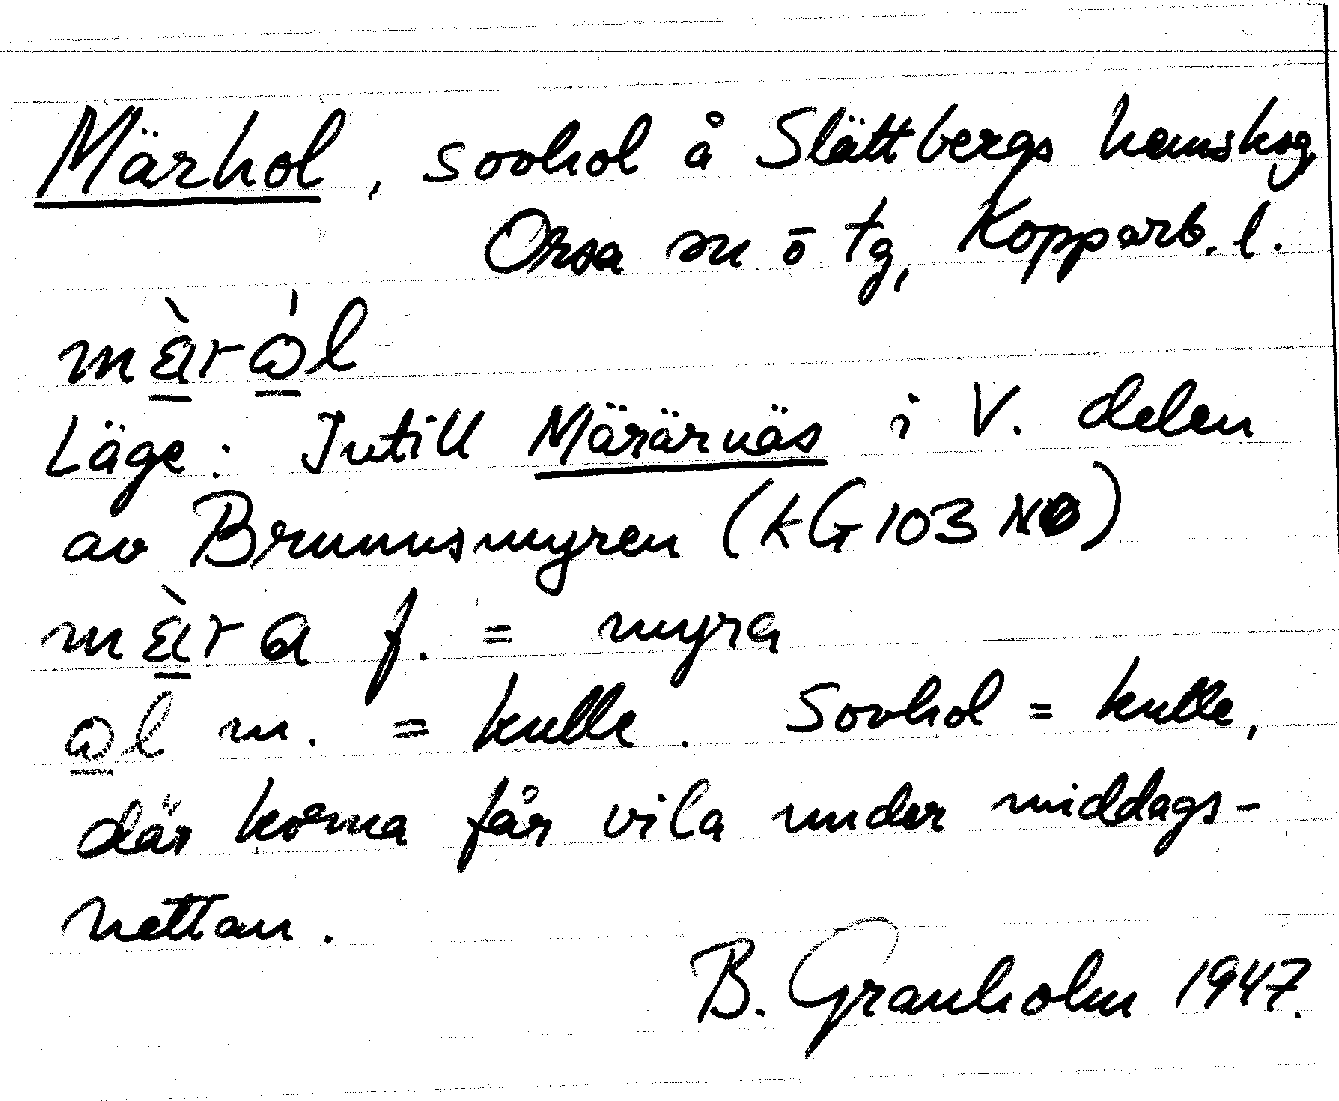 Märhol, sovhol å Slättbergs hemskog,
Orsa sn ō tg, Kopparb. l.
mä̀rωl
Läge: Intill Märärnäs i V. delen
av Brunnsmyren (KG 103 )
mä̀ra f. = myra
ωl m. = kulle. Sovhol = kulle,
där korna får vila under middags-
hettan.
B. Granholm 1947.